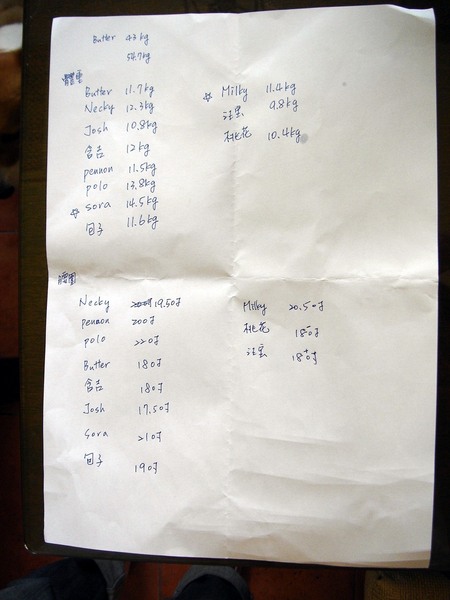 Butter 43kg
54.7kg
體重
Butter 11.7kg
Necky 12.3kg
Josh 10.8kg
含吉 12kg
pennon 11.5kg
polo 13.8kg
☆ sora 14.5kg
包子 11.6kg
☆ Milky 11.4kg
9.8kg
桃花 10.4kg
腰圍
Necky 19.5吋
pennon 20吋
polo 22吋
Butter 18吋
含吉 18吋
Josh 17.5吋
sora 21吋
包子 19吋
Milky 20.5吋
桃花 18吋
18吋